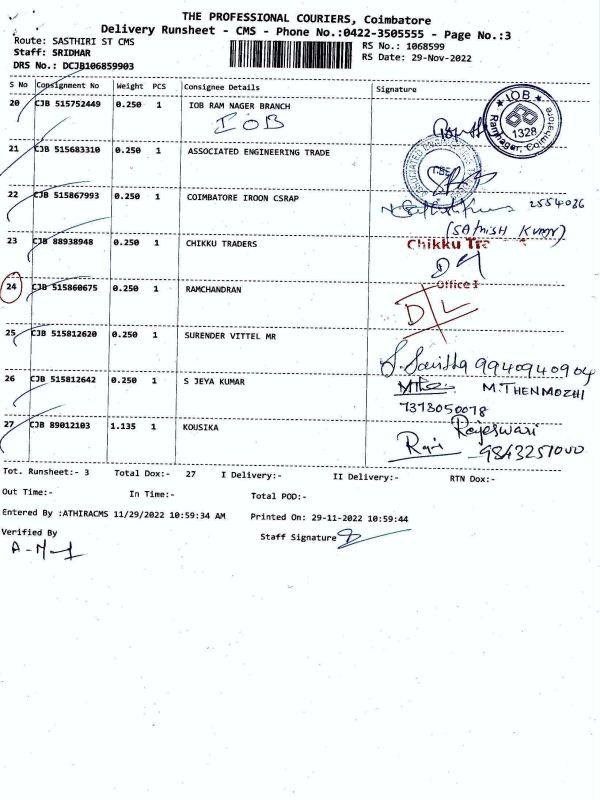 THE PROFESSIONAL COURIERS, Coimbatore
Delivery Runsheet - CMS - Phone No.:0422-3505555 - Page No.:3
Route: SASTHIRI ST CMS
Staff: SRIDHAR
DRS No.: DCJB106859903
RS No.: 1068599
RS Date: 29-Nov-2022
S No Consignment No Weight PCS Consignee Details Signature
20 CJB 515752449 0.250 1 IOB RAM NAGER BRANCH
IOB
IOB
1328
Ramnagar, Coimbatore
21 CJB 515683310 0.250 1 ASSOCIATED ENGINEERING TRADE
ASSOCIATED ENGINEERING
CBE
22 CJB 515867993 0.250 1 COIMBATORE IROON CSRAP
2554036
(SATHISH KUMAR)
23 CJB 88938948 0.250 1 CHIKKU TRADERS
Chikku Tra
24 CJB 515860675 0.250 1 RAMCHANDRAN
Office
D/L
25 CJB 515812620 0.250 1 SURENDER VITTEL MR
S. Savitha 9940940904
26 CJB 515812642 0.250 1 S JEYA KUMAR
M.THENMOZHI
7373050078
27 CJB 89012103 1.135 1 KOUSIKA
Rajeswari
9843251000
Tot. Runsheet:- 3 Total Dox:- 27 I Delivery:- II Delivery:- RTN Dox:-
Out Time:- In Time:- Total POD:-
Entered By :ATHIRACMS 11/29/2022 10:59:34 AM Printed On: 29-11-2022 10:59:44
Verified By Staff Signature